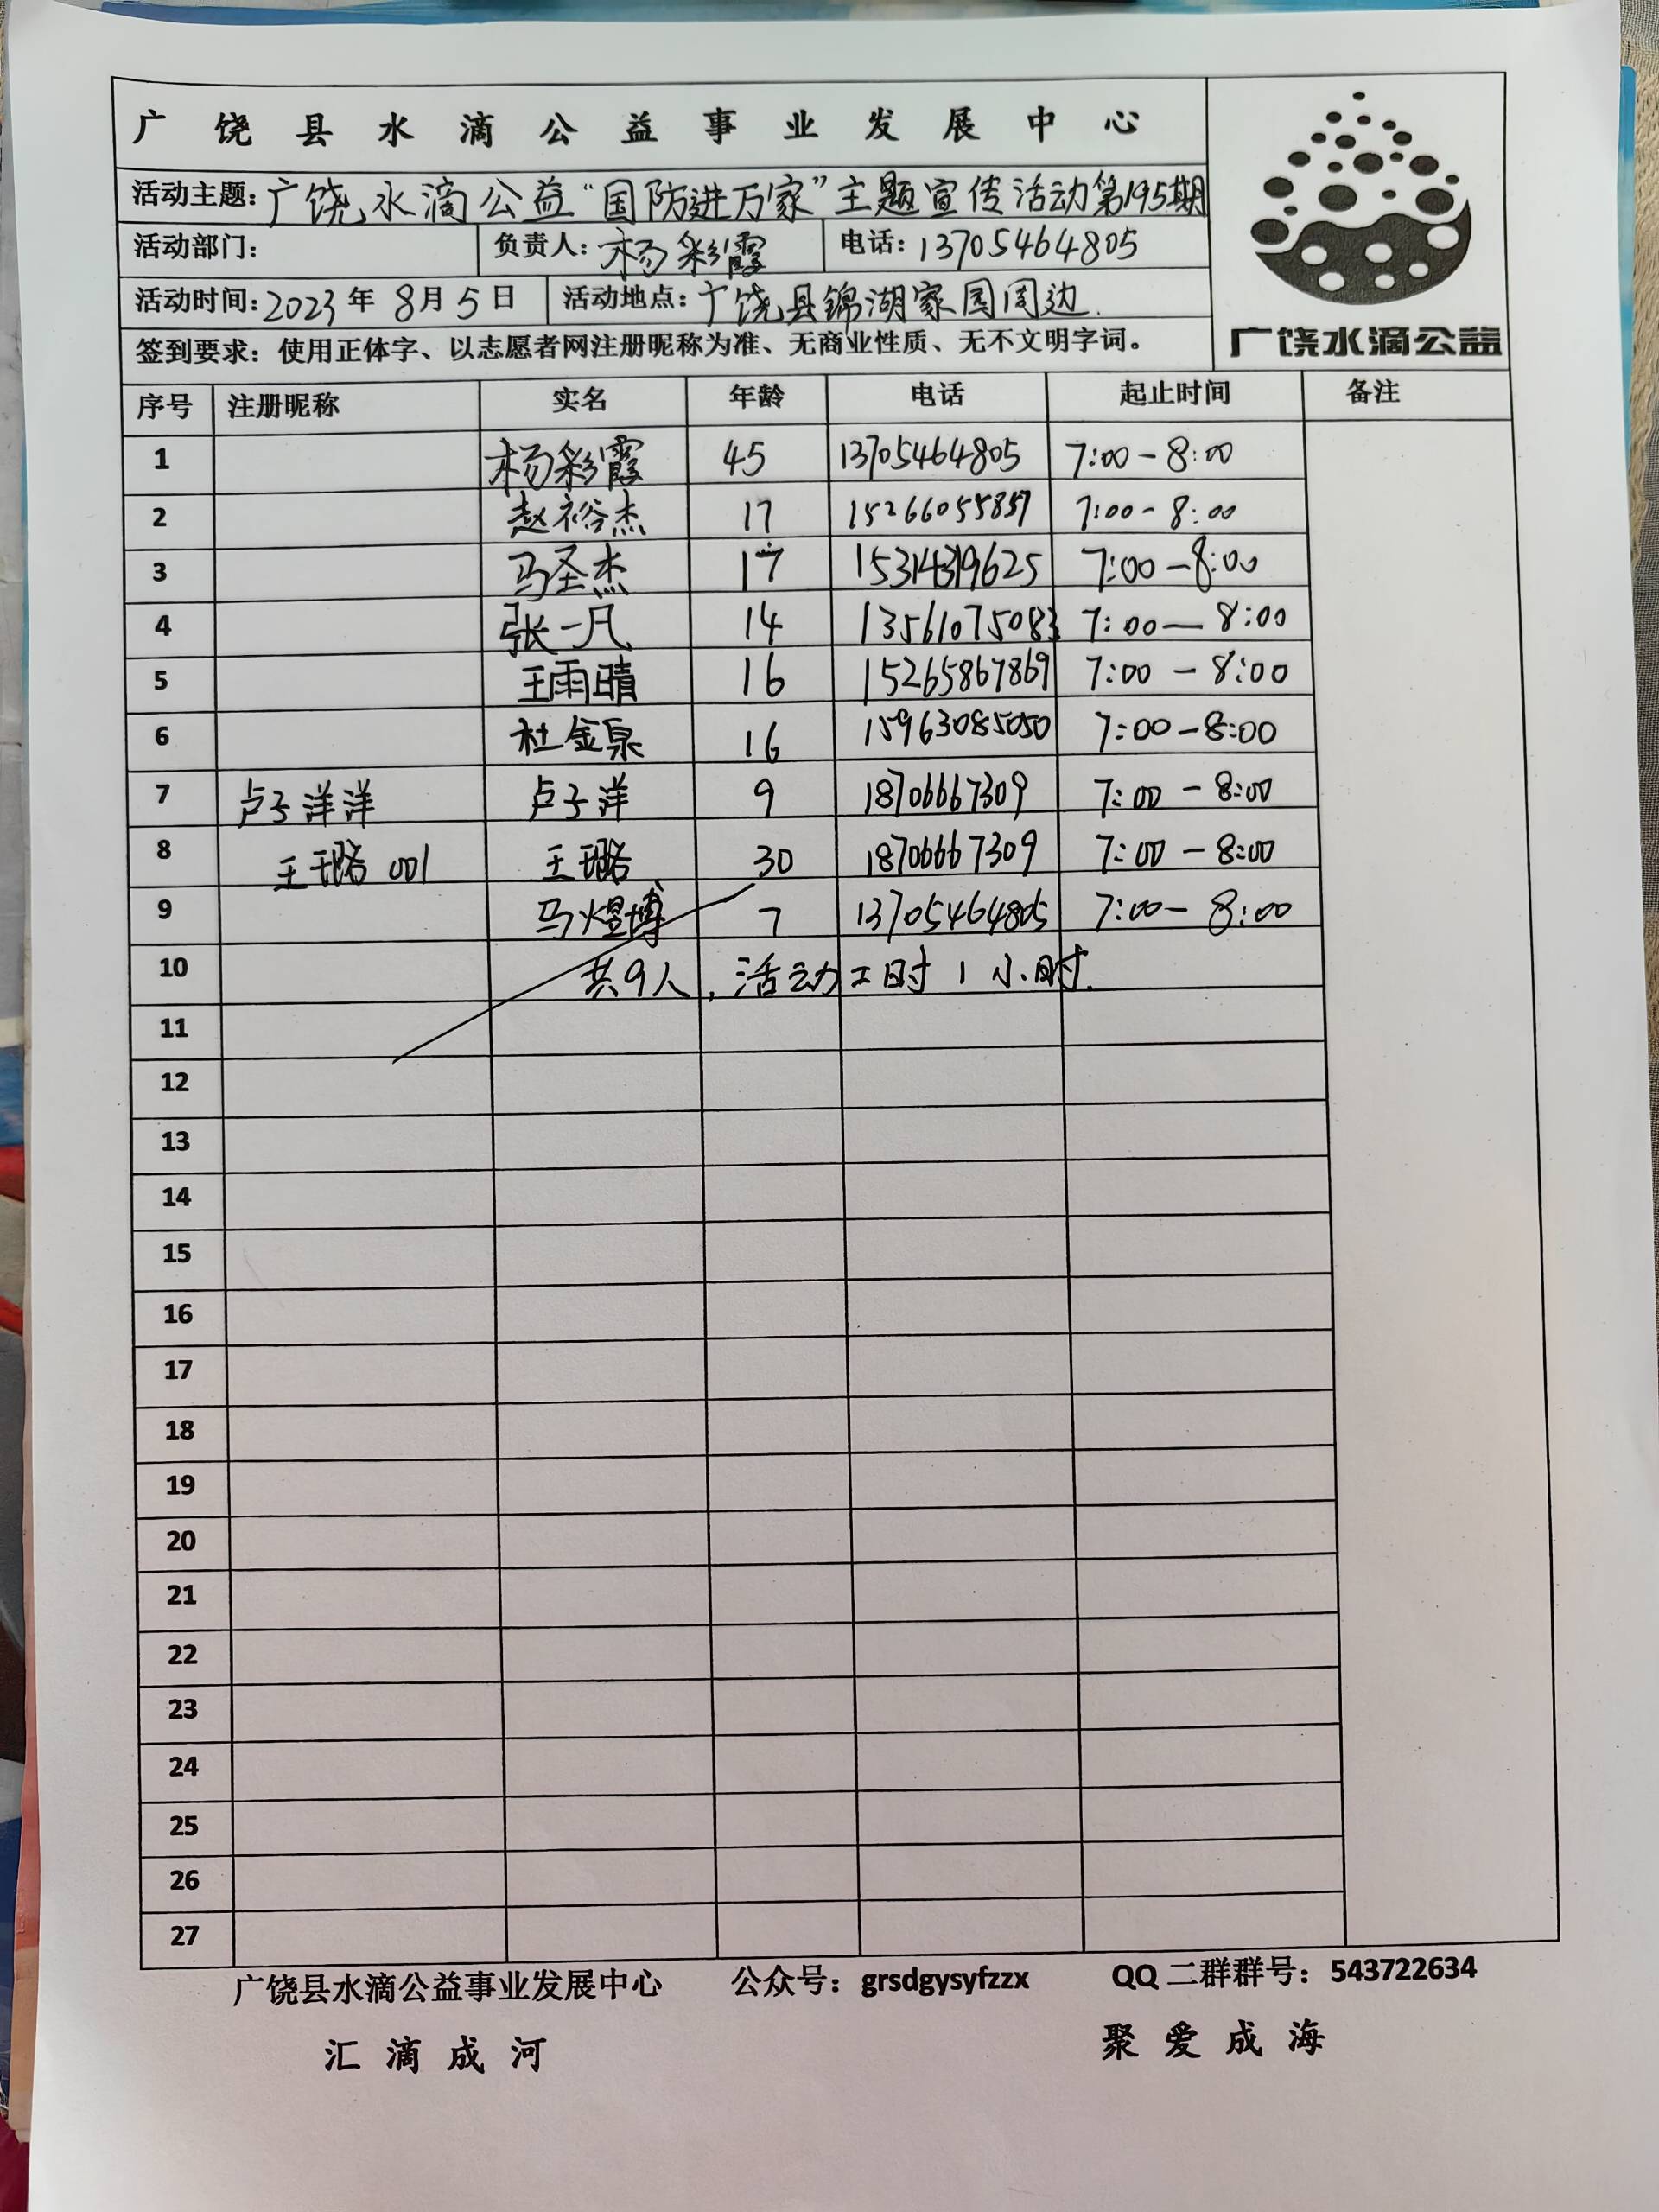 广饶县水滴公益事业发展中心
活动主题：广饶水滴公益“国防进万家”主题宣传活动第195期
活动部门： 负责人：杨彩霞 电话：13705464805
活动时间：2023年8月5日 活动地点：广饶县锦湖家园周边.
签到要求：使用正体字、以志愿者网注册昵称为准、无商业性质、无不文明字词。
广饶水滴公益
序号 注册昵称 实名 年龄 电话 起止时间 备注
1 杨彩霞 45 13705464805 7:00-8:00
2 赵裕杰 17 15266055857 7:00-8:00
3 马圣杰 17 7:00-8:00
4 张一凡 14 13561075083 7:00—8:00
5 王雨晴 16 15265867869 7:00-8:00
6 杜金泉 16 15963085050 7:00-8:00
7 卢子洋洋 卢子洋 9 18706667309 7:00-8:00
8 王璐001 王璐 30 18706667309 7:00-8:00
9 马煜博 7 13705464805 7:00-8:00
10 共9人，活动工时1小时.
11
12
13
14
15
16
17
18
19
20
21
22
23
24
25
26
27
广饶县水滴公益事业发展中心 公众号：grsdgysyfzzx QQ二群群号：543722634
汇滴成河 聚爱成海